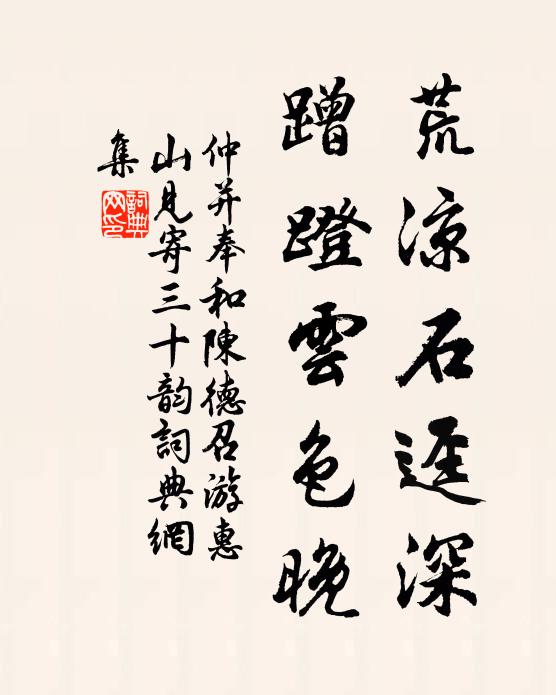 荒涼石逕深
蹭蹬雲色晚
仲并奉和陳德召游惠
山見寄三十韵詞典網
集
詞典
网印